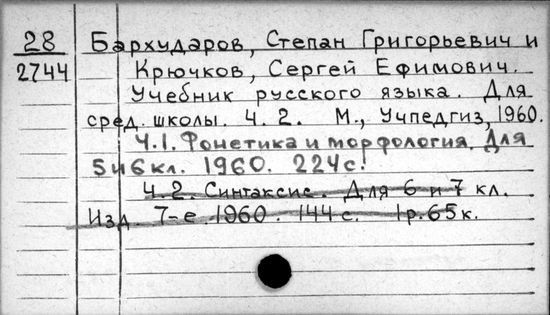 28
2744
Бархударов, Степан Григорьевич и
Крючков, Сергей Ефимович.
Учебник русского языка. Для
сред. школы. Ч. 2. М., Учпедгиз, 1960.
Ч.1. Фонетика и морфология. Для
5 и 6 кл. 1960. 224 с.
Ч 2. Синтаксис. Для 6 и 7 кл.
Изд. 7-е. 1960. 144 с. 1р. 65 к.